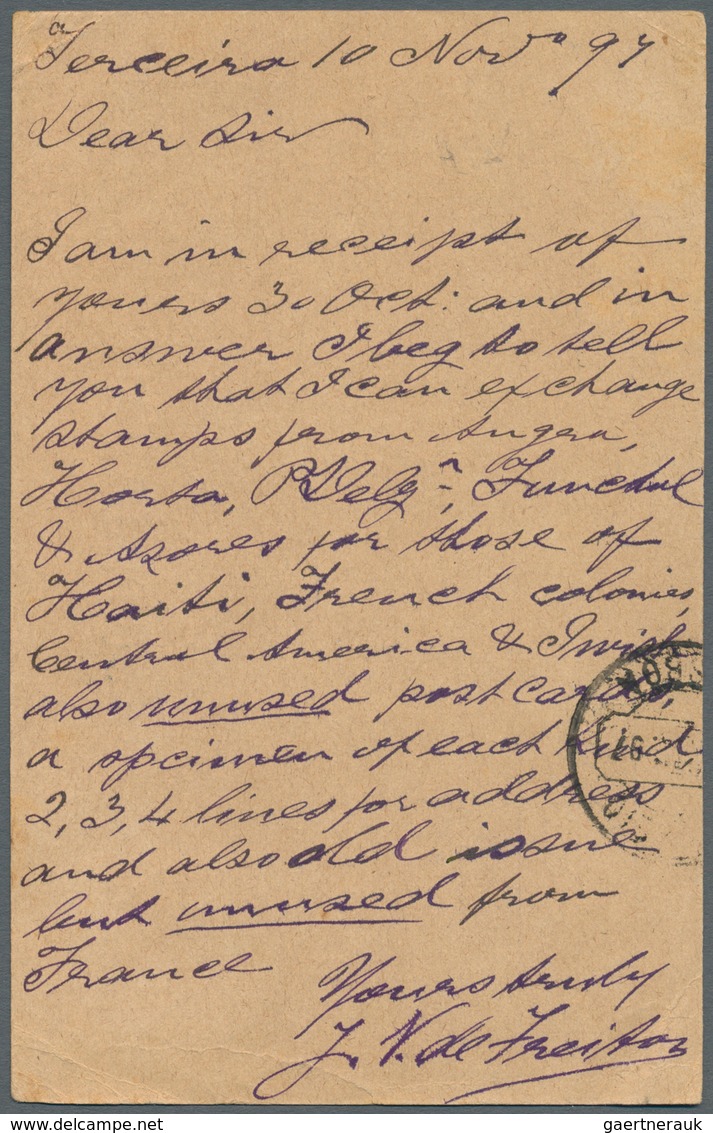 Terceira 10 Nov 97
Dear Sir
I am in receipt of
yours 30 Oct: and in
answer I beg to tell
you that I can exchange
stamps from Angra,
Horta, P Delgª, Funchal
& Azores for those of
Haiti, French colonies,
Central America &
also unused post cards,
a specimen of each kind
2, 3, 4 lines for address
and also old issue
but unused from
France
Yours truly
J. V. de Freitas
97
gaertnerauk